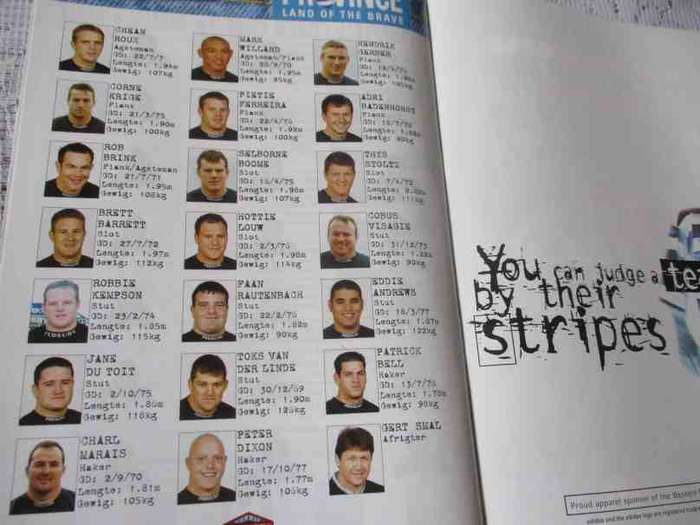 LAND OF THE BRAVE
CHEAN
ROUX
Agsteman
GD: 22/7/7
Lengte: 1.94m
Gewig: 107kg
MARK
WILLARD
Agsteman/Flank
Lengte: 1.95m
HENDRIK
GERBER
Flank
CORNE
KRIGE
Flank
GD: 21/3/75
Lengte: 1.90m
Gewig: 100kg
PIETIE
FERREIRA
Flank
GD: 22/4/76
Lengte: 1.92m
Gewig: 100kg
ADRI
BADENHORST
Flank
ROB
BRINK
Flank/Agsteman
GD: 21/7/71
Lengte: 1.95m
Gewig: 108kg
SELBORNE
BOOME
Slot
GD: 16/4/75
Lengte: 1.98m
Gewig: 107kg
THYS
STOLTZ
Slot
BRETT
BARRETT
Slot
GD: 27/7/72
Lengte: 1.97m
Gewig: 112kg
HOTTIE
LOUW
Slot
GD: 2/3/76
Lengte: 1.98m
Gewig: 114kg
COBUS
VISAGIE
Stut
GD: 31/12/73
Gewig: 90kg
ROBBIE
KEMPSON
Stut
GD: 23/2/74
Lengte: 1.85m
Gewig: 115kg
PAAN
RAUTENBACH
Stut
GD: 22/2/76
Lengte: 1.82m
Gewig: 90kg
EDDIE
ANDREWS
Stut
GD: 18/3/77
Lengte: 1.87m
Gewig: 122kg
JANE
DU TOIT
Stut
GD: 2/10/75
Lengte: 1.86m
Gewig: 118kg
TOKS VAN
DER LINDE
Stut
GD: 30/12/69
Lengte: 1.90m
Gewig: 126kg
PATRICK
BELL
Haker
GD: 13/7/76
Lengte: 1.78m
Gewig: 98kg
CHARL
MARAIS
Haker
GD: 2/9/70
Lengte: 1.81m
Gewig: 105kg
PETER
DIXON
Haker
GD: 17/10/77
Lengte: 1.77m
Gewig: 106kg
GERT SMAL
Afrigter
You can judge a
by their
stripes
Proud apparel sponsor of the